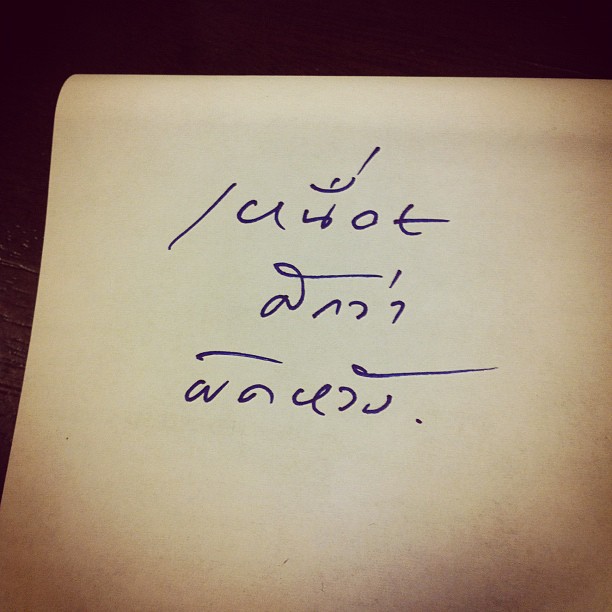 เหนื่อย
ดีกว่า
ผิดหวัง.